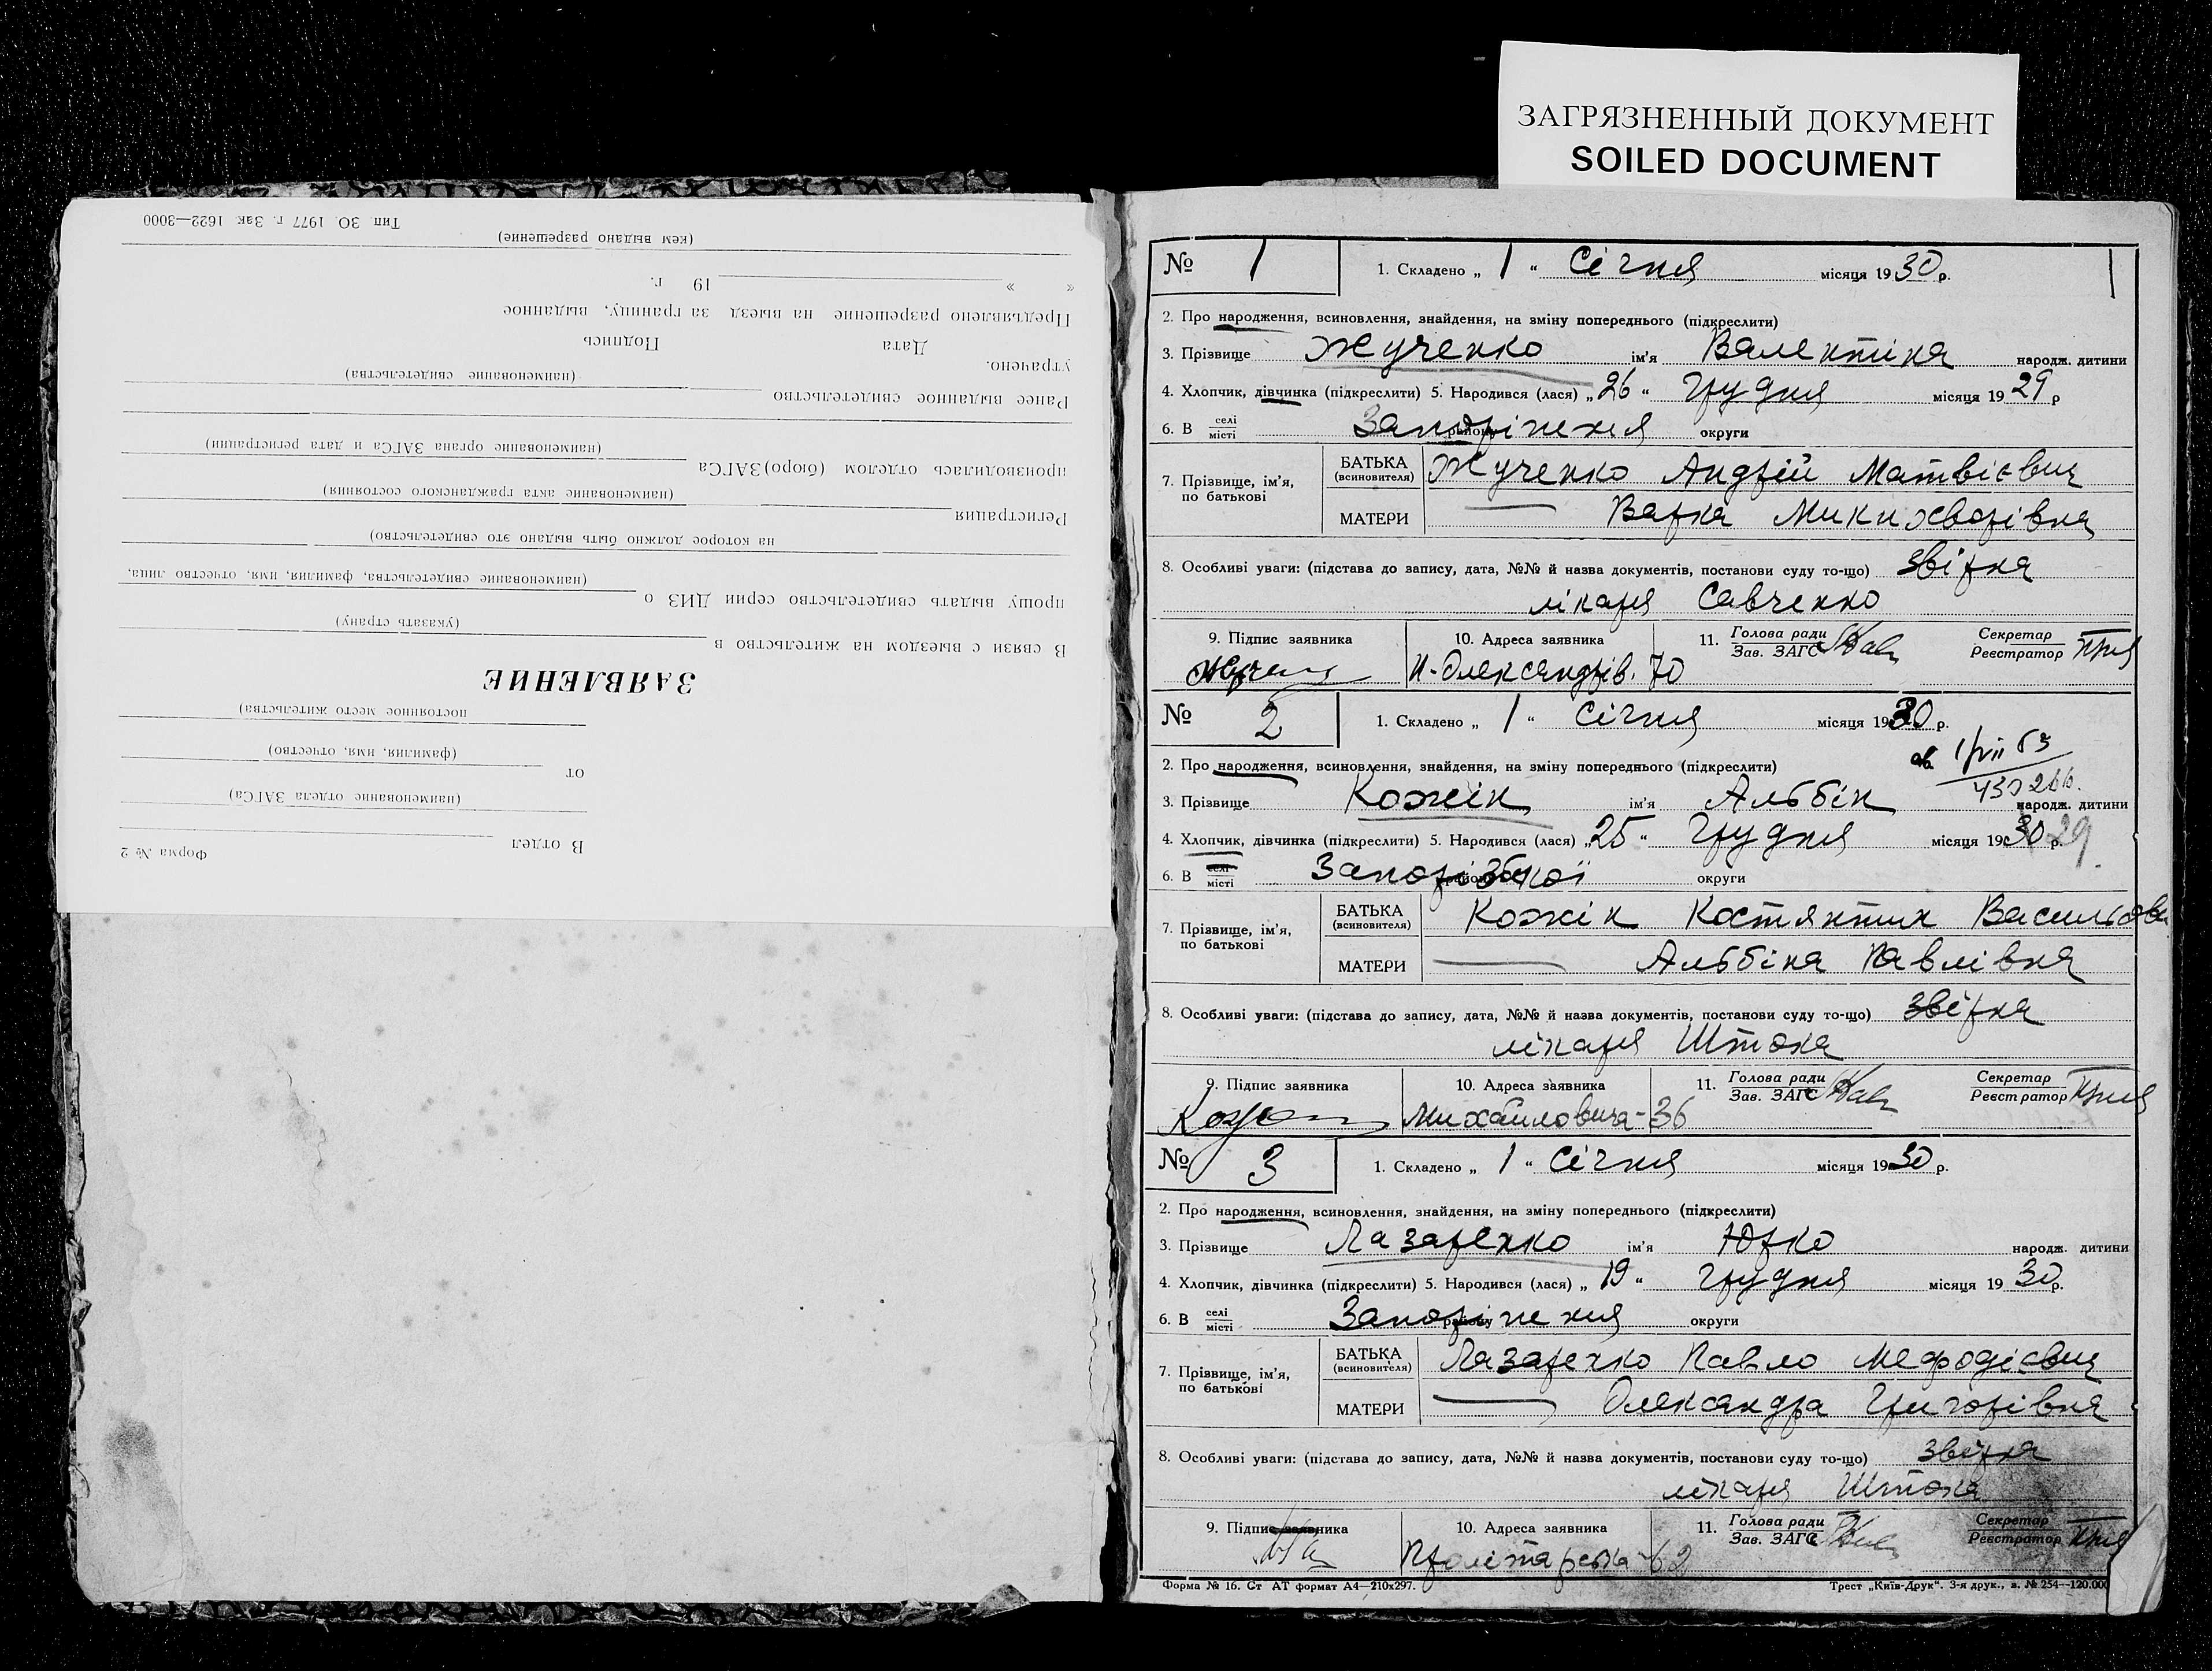 ЗАГРЯЗНЕННЫЙ ДОКУМЕНТ
SOILED DOCUMENT
Форма № 2
В отдел
(наименование отдела ЗАГСа)
от
(фамилия, имя, отчество)
постоянное место жительства)
ЗАЯВЛЕНИЕ
В связи с выездом на жительство в
(указать страну)
прошу выдать свидетельство серии ДИЗ о
(наименование свидетельства, фамилия, имя, отчество лица,
на которое должно быть выдано это свидетельство)
Регистрация
(наименование акта гражданского состояния)
производилась отделом (бюро) ЗАГСа
(наименование органа ЗАГСа и дата регистрации)
Ранее выданное свидетельство
(наименование свидетельства)
утрачено.
Дата Подпись
Предъявлено разрешение на выезд за границу, выданное
« » 19 г.
(кем выдано разрешение)
Тип. ЗО. 1977 г. Зак. 1622—3000
№ 1 1. Складено „ 1 “ Січня місяця 1930 р. 1
2. Про народження, всиновлення, знайдення, на зміну попереднього (підкреслити)
3. Прізвище Жученко ім'я Валентіна народж. дитини
4. Хлопчик, дівчинка (підкреслити) 5. Народився (лася) „ 26 “ Грудня місяця 1929 р
6. В селі місті Запоріжжя району округи
7. Прізвище, ім'я, по батькові БАТЬКА (всиновителя) Жученко Андрій Матвієвич
МАТЕРИ — Варка Микихворівна
8. Особливі уваги: (підстава до запису, дата, №№ й назва документів, постанови суду то-що) Звірка
лікаря Савченко
9. Підпис заявника 10. Адреса заявника 11. Голова ради Зав. ЗАГС Секретар Реєстратор
Н-Олександрів. 70
№ 2 1. Складено „ 1 “ Січня місяця 1930 р.
2. Про народження, всиновлення, знайдення, на зміну попереднього (підкреслити)
3. Прізвище Кожін ім'я Альбін народж. дитини
4. Хлопчик, дівчинка (підкреслити) 5. Народився (лася) „ 25 “ Грудня місяця 1930 р. 29
6. В селі місті Запорізької району округи
7. Прізвище, ім'я, по батькові БАТЬКА (всиновителя) Кожін Костянтин
МАТЕРИ — Альбіна Павлівна
8. Особливі уваги: (підстава до запису, дата, №№ й назва документів, постанови суду то-що) Звірка
лікаря Штока
9. Підпис заявника 10. Адреса заявника 11. Голова ради Зав. ЗАГС Секретар Реєстратор
Михайловича-36
№ 3 1. Складено „ 1 “ Січня місяця 1930 р.
2. Про народження, всиновлення, знайдення, на зміну попереднього (підкреслити)
3. Прізвище Лазаренко ім'я Юрко народж. дитини
4. Хлопчик, дівчинка (підкреслити) 5. Народився (лася) „ 19 “ Грудня місяця 1930 р.
6. В селі місті Запоріжжя району округи
7. Прізвище, ім'я, по батькові БАТЬКА (всиновителя) Лазаренко Павло Мефодієвич
МАТЕРИ — Олександра Григорівна
8. Особливі уваги: (підстава до запису, дата, №№ й назва документів, постанови суду то-що) Звірка
лікаря Штока
9. Підпис заявника 10. Адреса заявника 11. Голова ради Зав. ЗАГС Секретар Реєстратор
Пролітарська-62
Форма № 16. Ст АТ формат А4—210х297. Трест „Київ-Друк“. 3-я друк., з. № 254—120.000